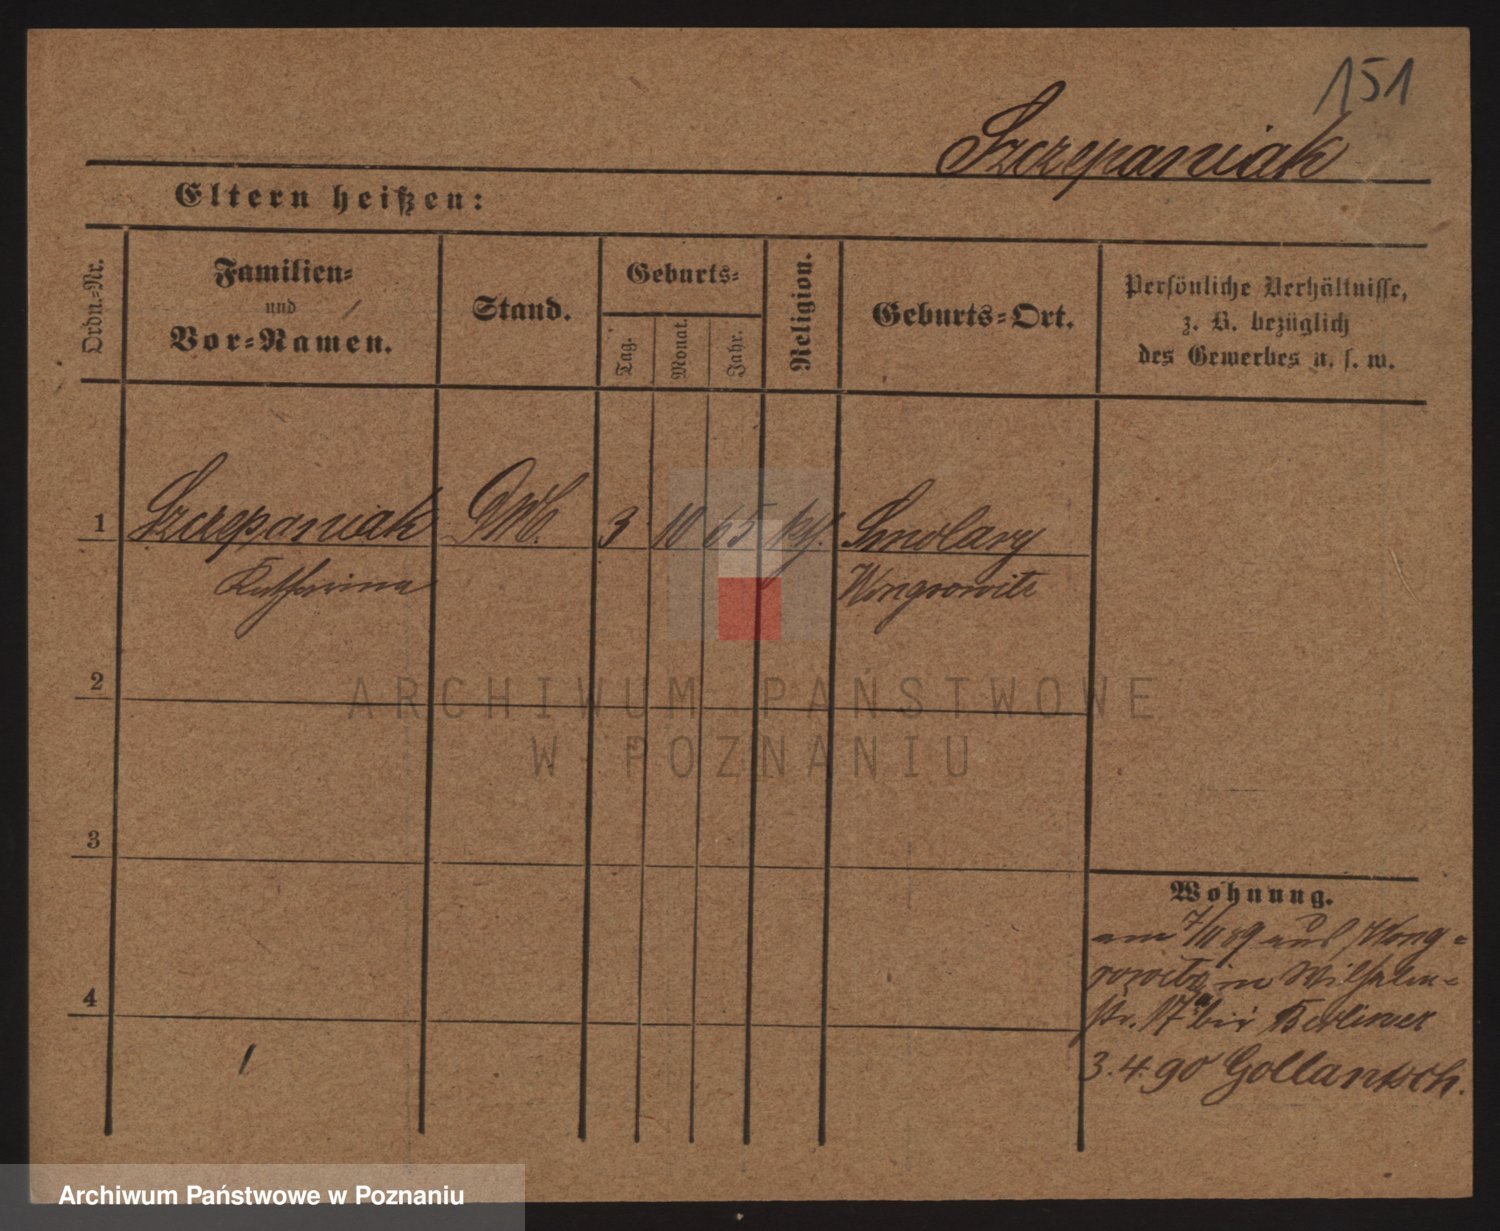 151
Szczepaniak
Eltern heißen:
Ordn.-Nr.
Familien-
und
Vor-Namen.
Stand.
Geburts-
Tag.
Monat.
Jahr.
Religion.
Geburts-Ort.
Persönliche Verhältnisse,
z. B. bezüglich
des Gewerbes u. s. w.
1 Szczepaniak 3 10 65 Smolary
Katharina Wongrowitz
2
ARCHIWUM PAŃSTWOWE
W POZNANIU
3
Wohnung.
am 7/11 89 aus Wong-
rowitz in Wilhelm-
str. 17a bei Berliner
4
3.4.90 Gollantsch.
Archiwum Państwowe w Poznaniu